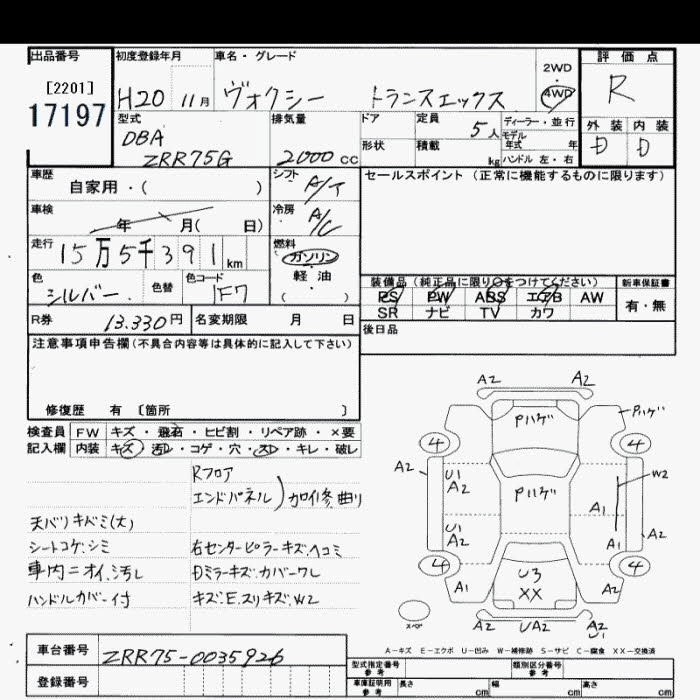 出品番号 初度登録年月 車名・グレード 評価点
[2201]
17197
H20 11月 ヴォクシー トランスエックス 2WD 4WD R
型式 排気量 ドア 定員 ディーラー・並行 外装 内装
DBA
ZRR75G 2000 cc 5人 モデル年式 年 D D
形状 積載 kg ハンドル 左・右
車歴 シフト セールスポイント (正常に機能するものに限ります)
自家用・( ) A/T
車検 年 月( 日) 冷房 A/C
走行 15万5千391km 燃料 ガソリン
軽・油
( )
色 シルバー 色替 色コード 1F7
装備品 (純正品に限り○をつけてください) 新車保証書
PS PW ABS エアB AW 有・無
SR ナビ TV カワ
R券 13.330円 名変期限 月 日
後日品
注意事項申告欄(不具合内容等は具体的に記入して下さい)
修復歴 有 [箇所 ]
検査員 FW キズ・飛石・ヒビ割・リペア跡・×要
記入欄 内装 キズ・汚レ・コゲ・穴・スレ・キレ・破レ
Rフロア
エンドパネル)カロイ修.曲リ
天バリキズミ(大)
シートコゲ.シミ 右センターピラーキズ.ヘコミ
車内ニオイ.汚レ Dミラーキズ.カバーワレ
ハンドルカバー付 キズ.E.スリキズ.W2
A2 A2
Pハゲ Pハゲ
4 4
A2 U1 A2 Pハゲ W2
A1
U1 A2 A1 A2
4 4
A1 U3 XX A1
スペア UA2 A2 U1
A-キズ E-エクボ U-凹み W-補修跡 S-サビ C-腐食 XX-交換済
車台番号 ZRR75-0035926
登録番号
型式指定番号 参考 類別区分番号 参考
車庫証明用 参考 長さ cm 幅 cm 高さ cm